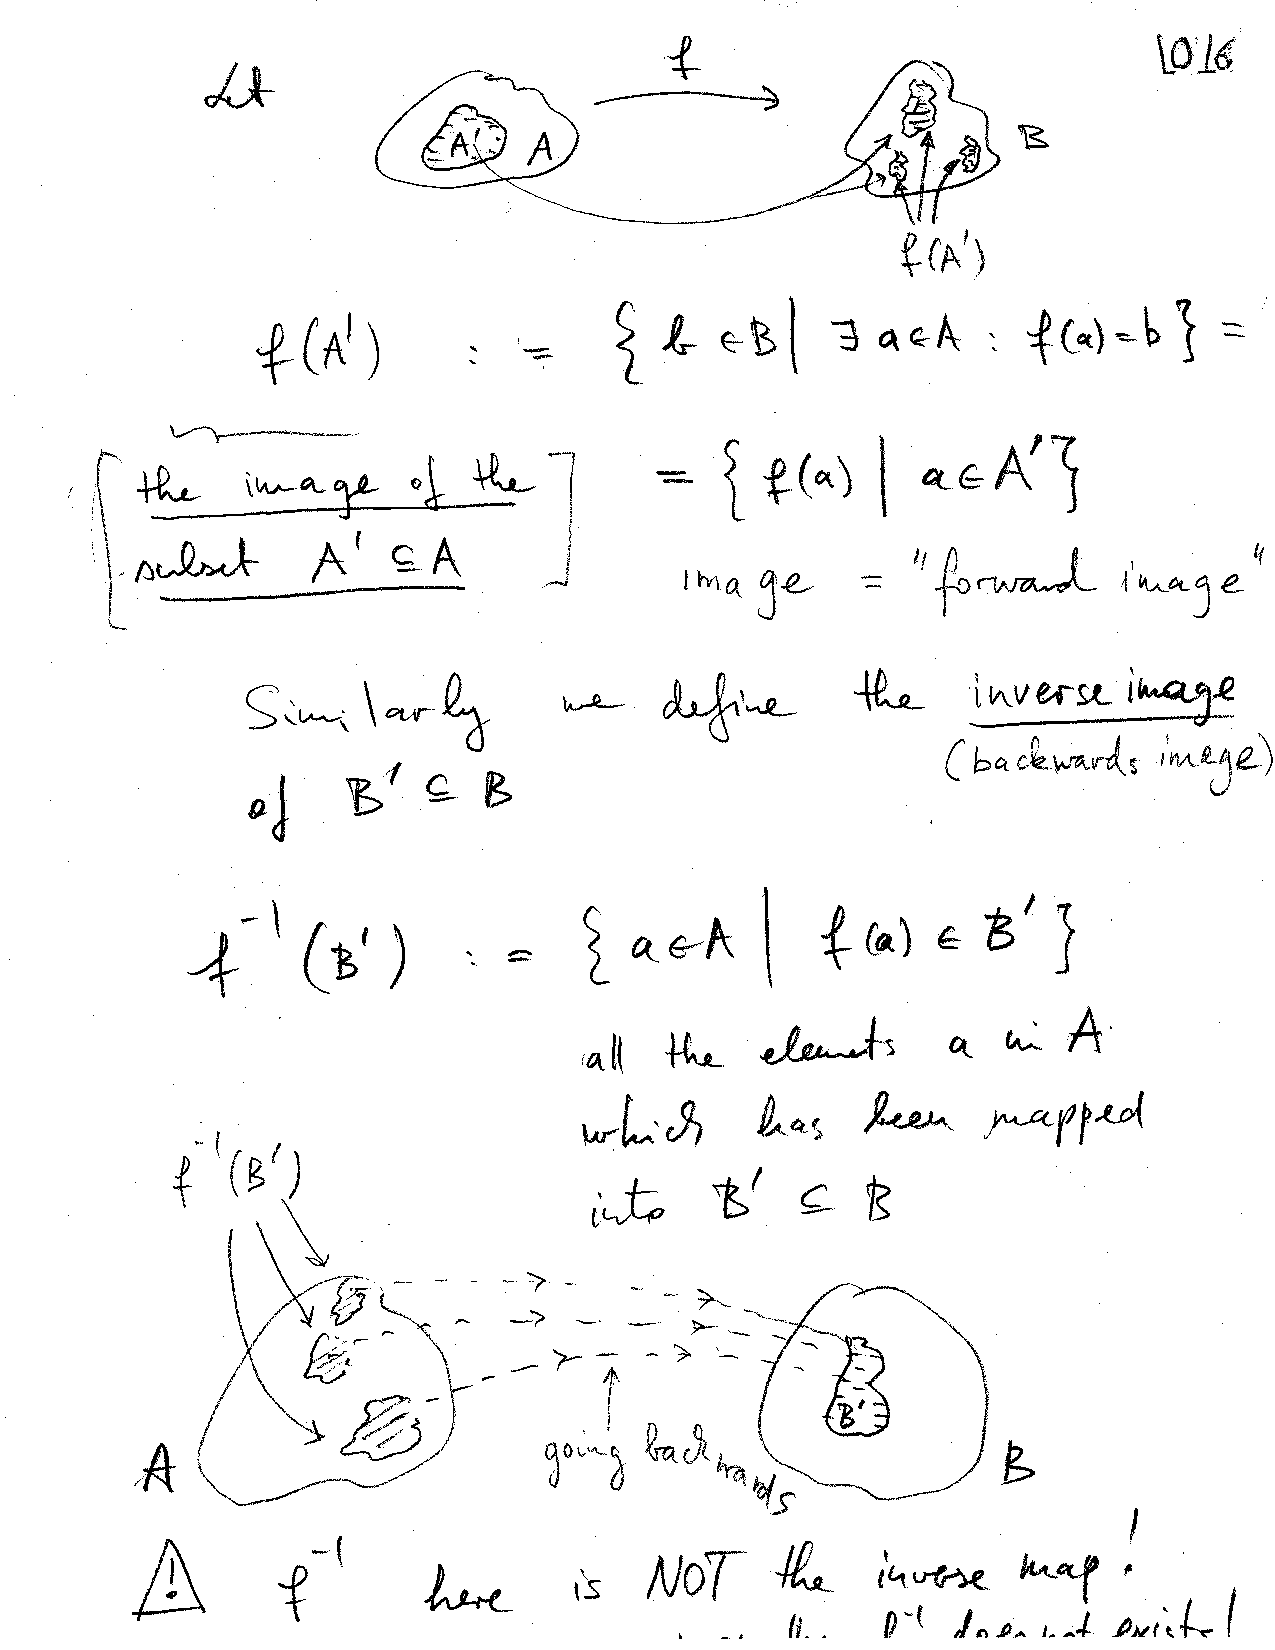 L0/6
Let
f
A'
A
B
f(A')
f(A') := { b ∈ B | ∃ a ∈ A : f(a) = b } =
[the image of the
subset A' ⊆ A]
= { f(a) | a ∈ A' }
image = "forward image"
Similarly we define the inverse image
(backwards image)
of B' ⊆ B
f⁻¹(B') := { a ∈ A | f(a) ∈ B' }
all the elemets a in A
which has been mapped
into B' ⊆ B
f⁻¹(B')
B'
going backwards
A
B
! f⁻¹ here is NOT the inverse map!
f⁻¹ does not exist!